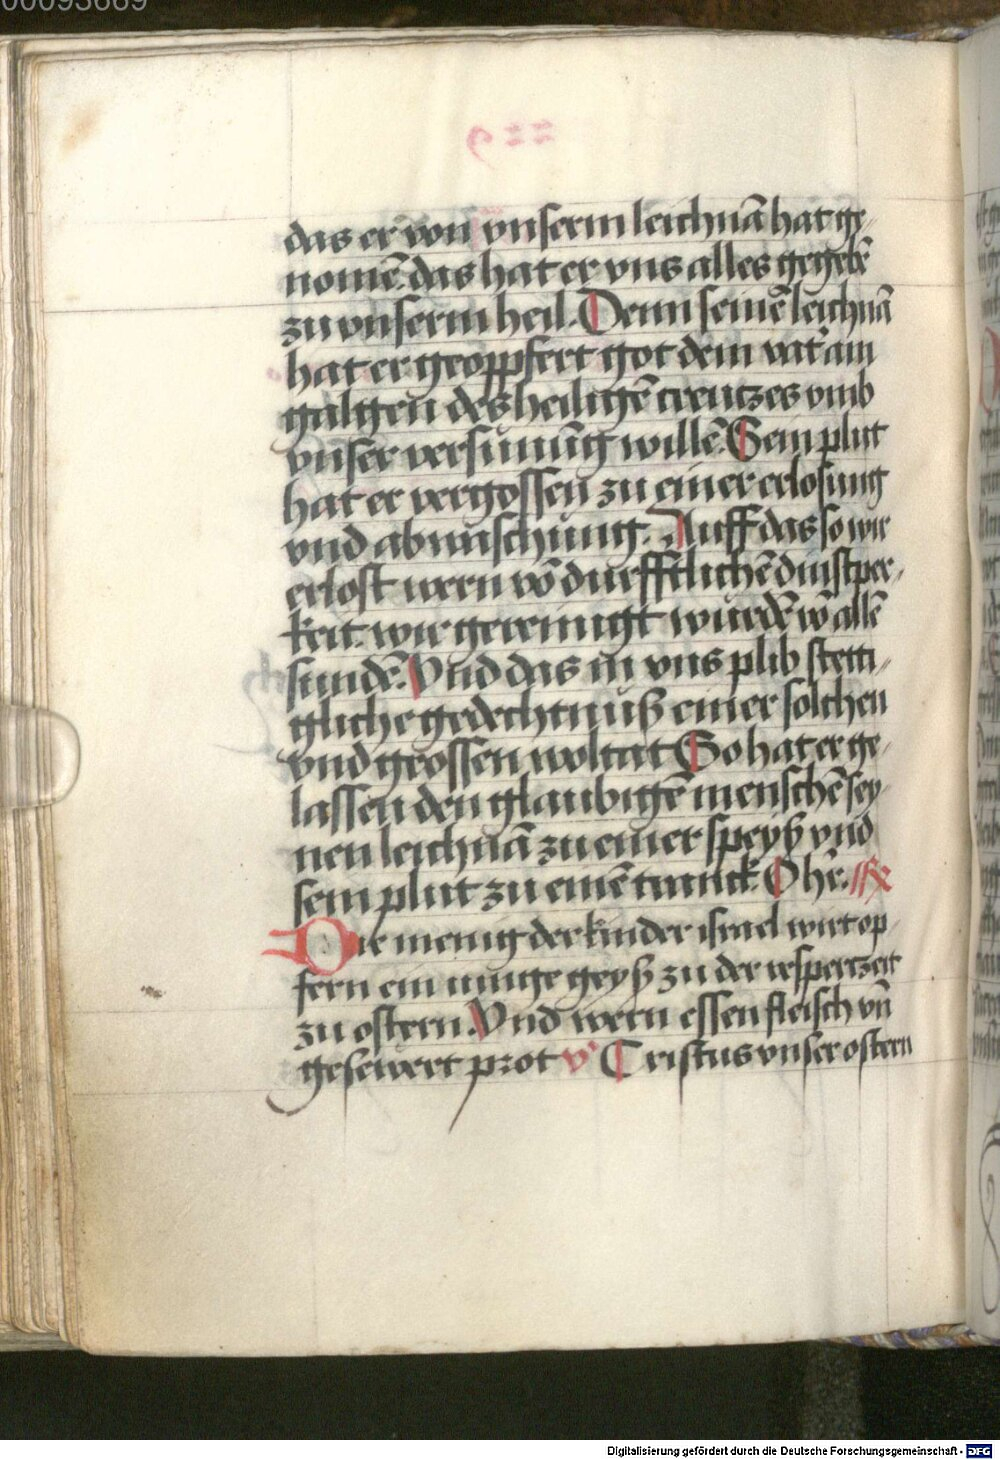 das er von vnserm leichnā hat ge-
nomē. das hat er vns alles gegebē
zu vnserm heil. Denn seinē leichnā
hat er geoppfert got dem vat' am
galgen des heiligē creutzes vmb
vnser versūnūg willē. Sein plut
hat er vergossen zu einer erlosung
vnd abwaschung. Auff das so wir
erlost wern vō durfftlichē dinstper-
keit. wir gereinigt wurdē vō allē
sundē. Vnd das in vns plib stetti-
gliche gedechtnuß einer solchen
vnd grossen woltat So hat er ge-
lassen den glaubigē menschē sey-
nen leichnā zu einer speyß vnd
sein plut zu einē tranck. O hr̄.
Die menig der kinder israel wirt op-
fern ein iunge geyß zu der vesperzeit
zu ostern. Vnd wern essen fleisch vn̄
gesewert prot v' Cristus vnser ostern
00093669
Digitalisierung gefördert durch die Deutsche Forschungsgemeinschaft - DFG